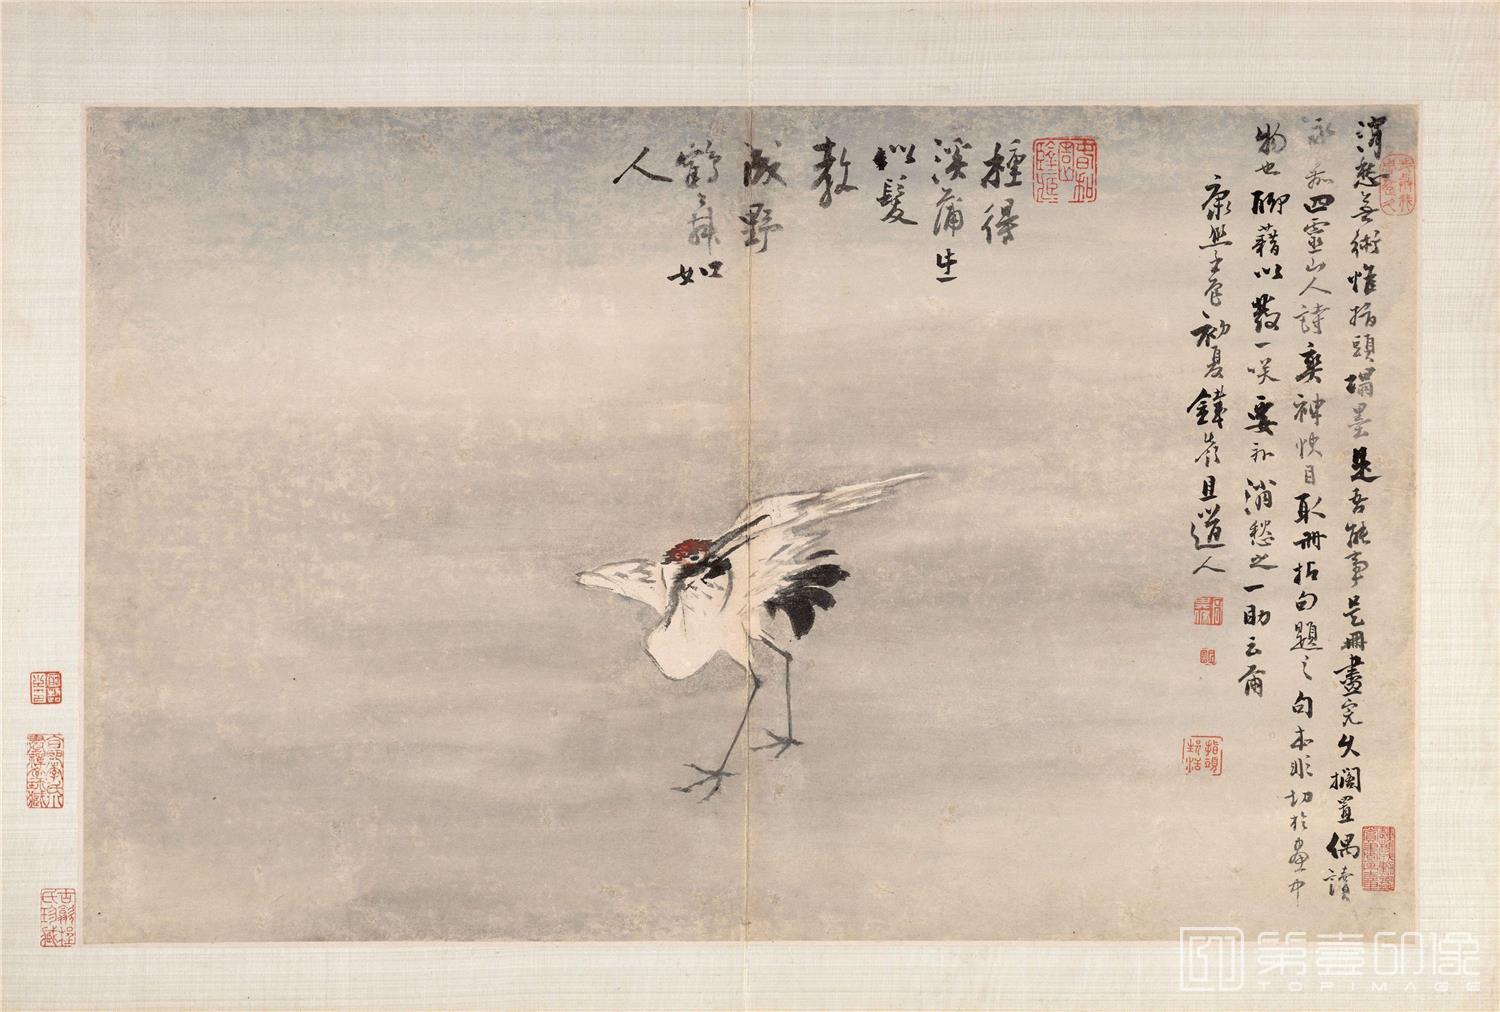 消愁無術惟指頭墨是吾能事是冊畫完久擱置偶讀
永嘉四靈山人詩爽神快目取冊拈句題之句本非切於畫中
物也聊藉以發一笑要亦消愁之一助云爾
康熙壬辰初夏鐵嶺且道人
種得
溪蒲生
似髮
教
成野
鶴舞如
人
第壹印像
TOPIMAGE